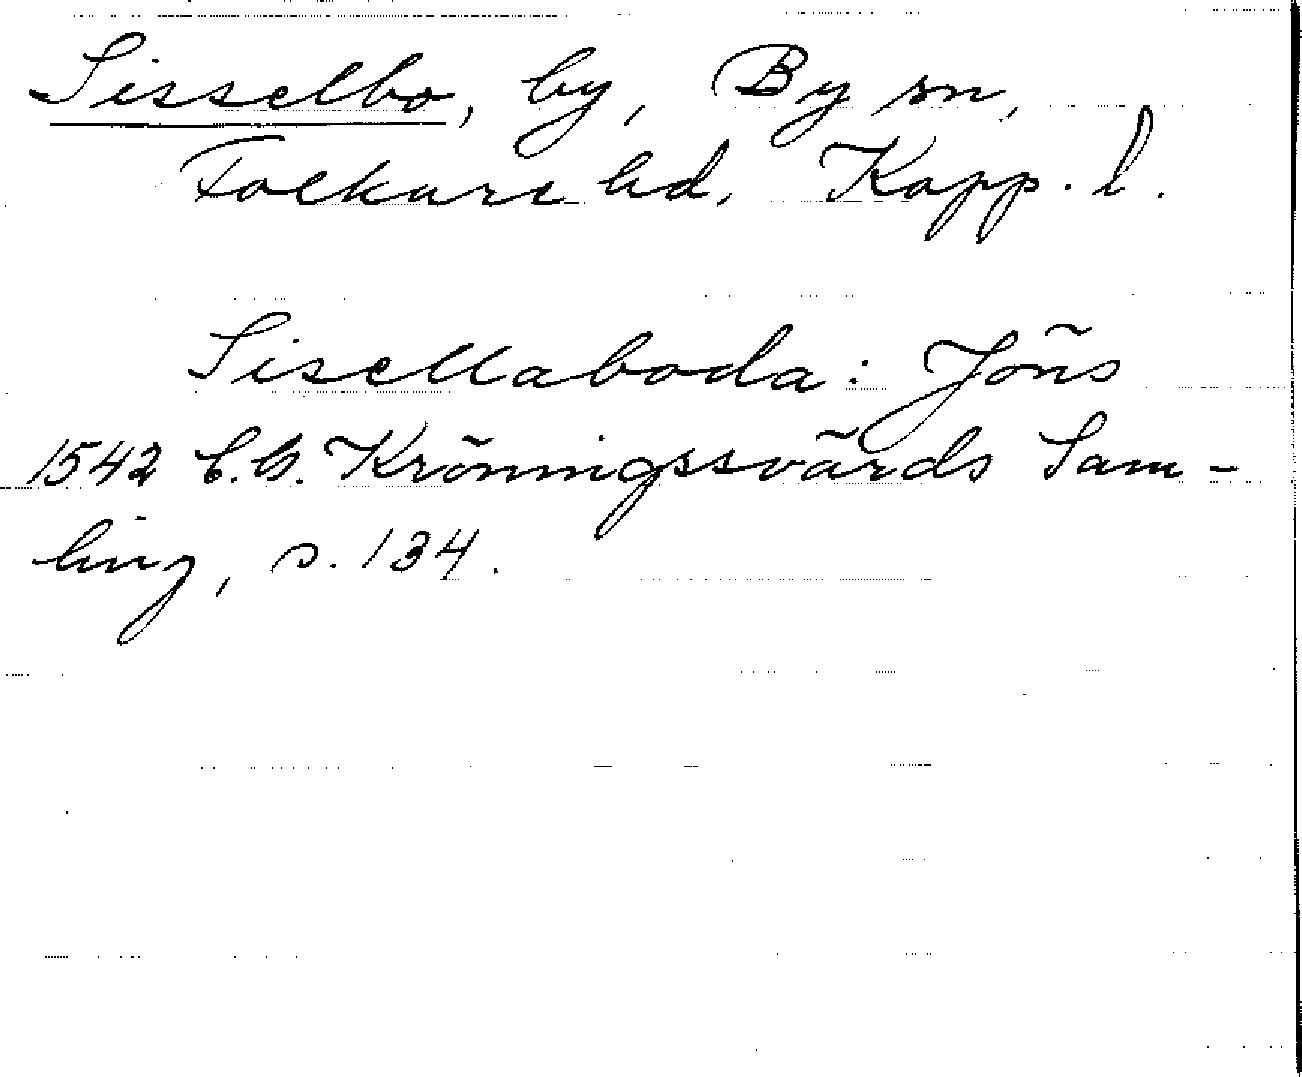 Sisselbo, by, By sn,
Folkare hd, Kopp. l.
Sisellaboda: Jöns
1542 C.G. Kröningssvärds Sam-
ling, s. 134.